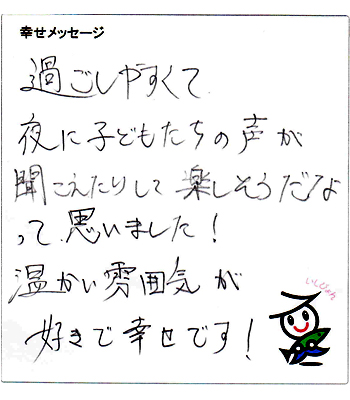 幸せメッセージ
過ごしやすくて
夜に子どもたちの声が
聞こえたりして楽しそうだな
って思いました！
温かい雰囲気が
好きで幸せです！